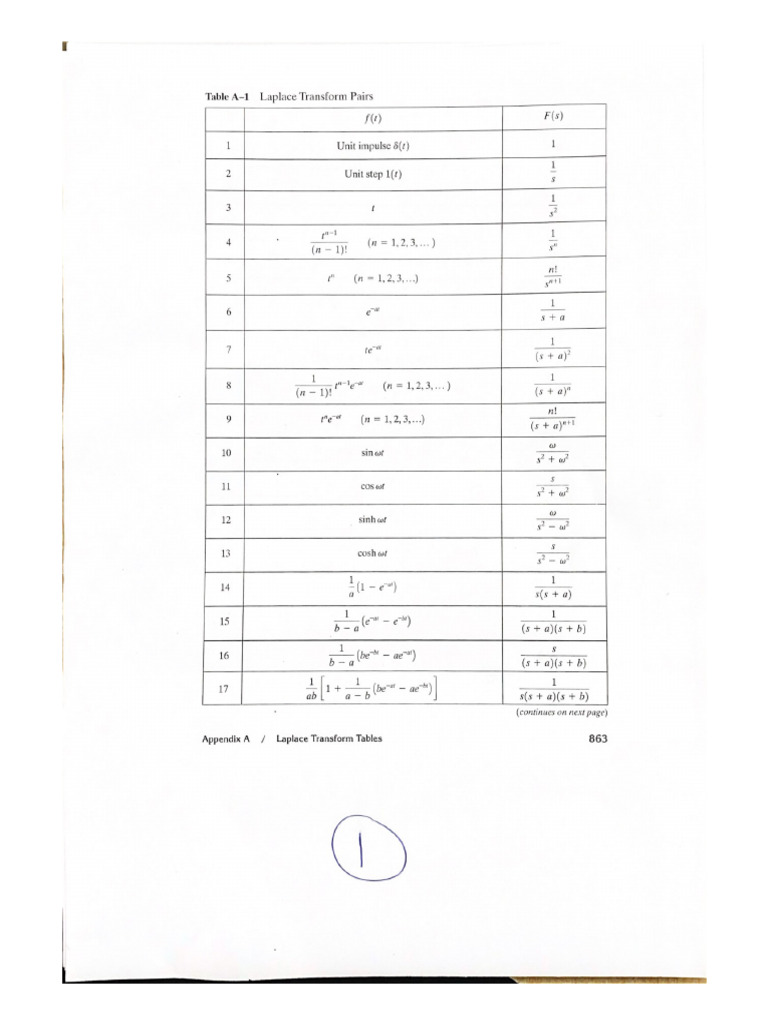 Table A–1 Laplace Transform Pairs
f(t) F(s)
1 Unit impulse δ(t) 1
2 Unit step 1(t) 1/s
3 t 1/s²
4 tⁿ⁻¹/(n − 1)! (n = 1, 2, 3, ... ) 1/sⁿ
5 tⁿ (n = 1, 2, 3, ...) n!/sⁿ⁺¹
6 e⁻ᵃᵗ 1/(s + a)
7 te⁻ᵃᵗ 1/(s + a)²
8 1/(n − 1)! tⁿ⁻¹e⁻ᵃᵗ (n = 1, 2, 3, ... ) 1/(s + a)ⁿ
9 tⁿe⁻ᵃᵗ (n = 1, 2, 3, ...) n!/(s + a)ⁿ⁺¹
10 sin ωt ω/(s² + ω²)
11 cos ωt s/(s² + ω²)
12 sinh ωt ω/(s² − ω²)
13 cosh ωt s/(s² − ω²)
14 1/a (1 − e⁻ᵃᵗ) 1/(s(s + a))
15 1/(b − a) (e⁻ᵃᵗ − e⁻ᵇᵗ) 1/((s + a)(s + b))
16 1/(b − a) (be⁻ᵇᵗ − ae⁻ᵃᵗ) s/((s + a)(s + b))
17 1/ab [1 + 1/(a − b) (be⁻ᵃᵗ − ae⁻ᵇᵗ)] 1/(s(s + a)(s + b))
(continues on next page)
Appendix A / Laplace Transform Tables 863
1